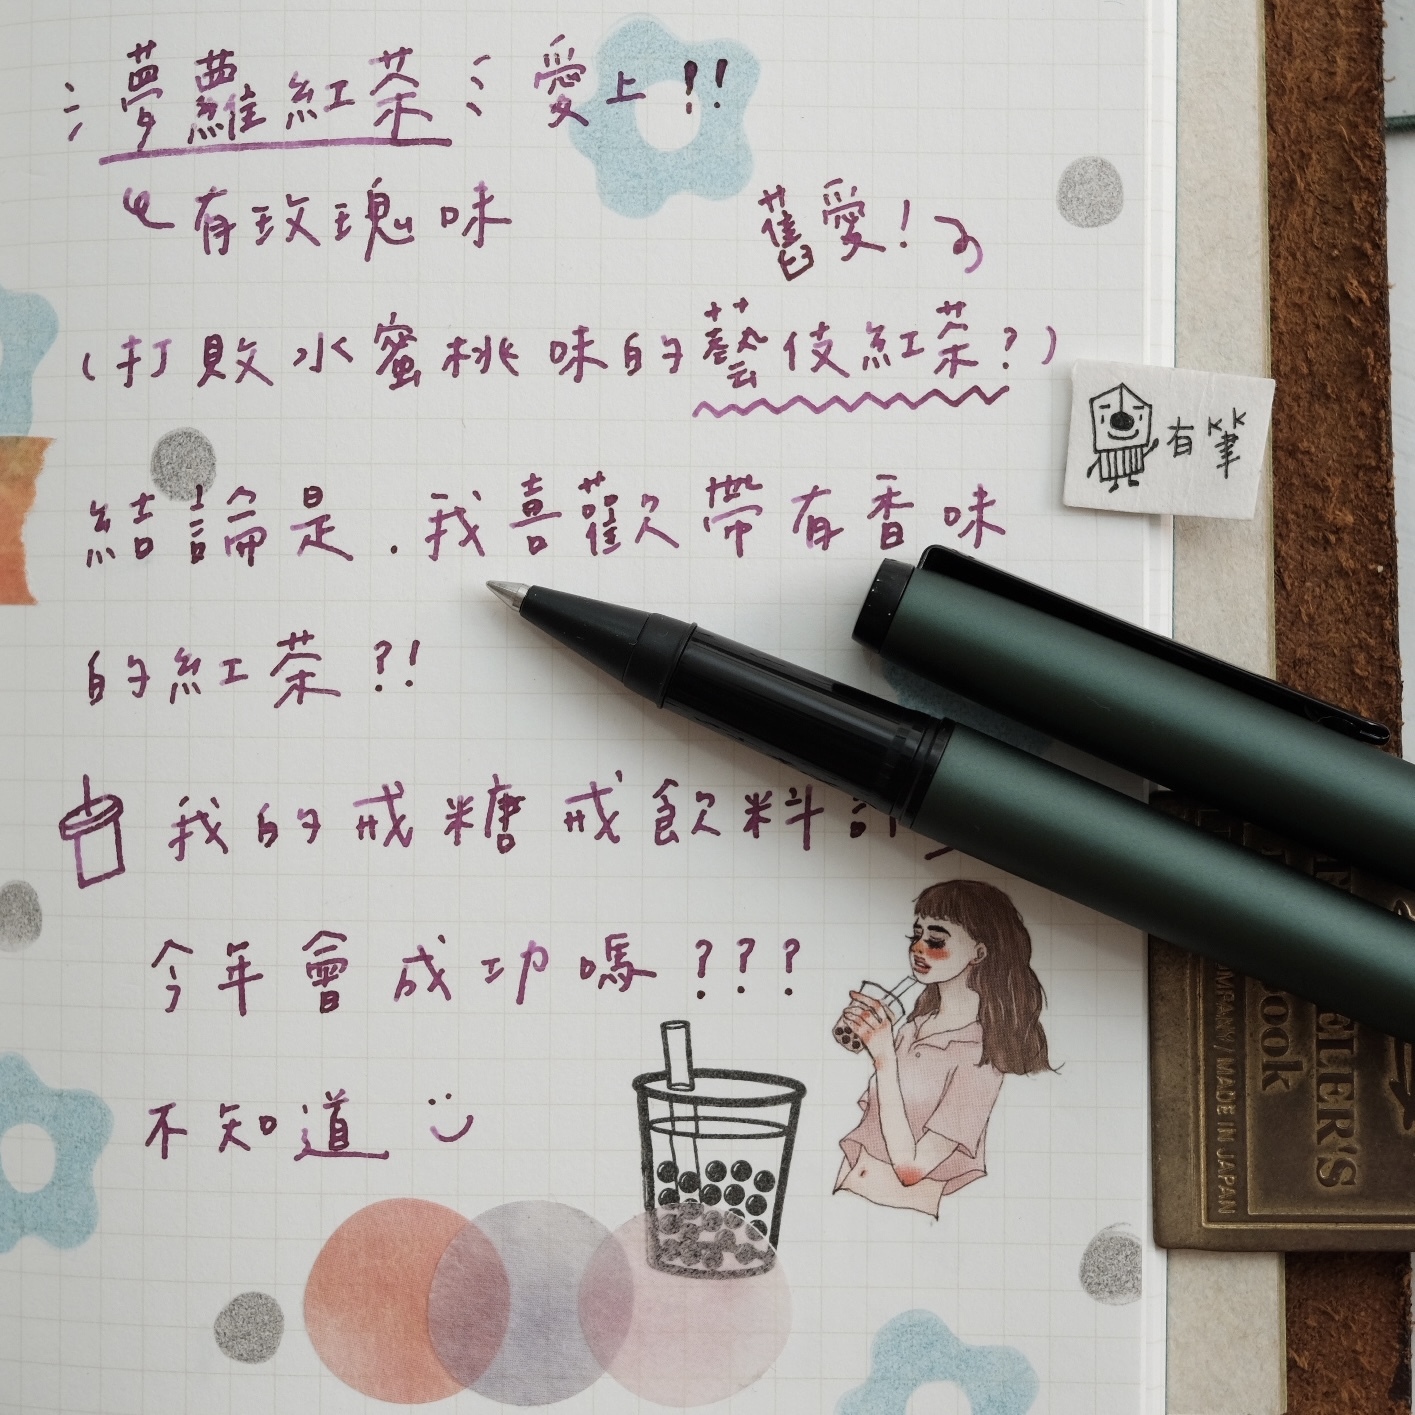 夢蘿紅茶 愛上!!
有玫瑰味
舊愛!
(打敗水蜜桃味的藝伎紅茶?)
有筆
結論是.我喜歡帶有香味
的紅茶?!
我的戒糖戒飲料
今年會成功嗎???
不知道
COMPANY / MADE IN JAPAN